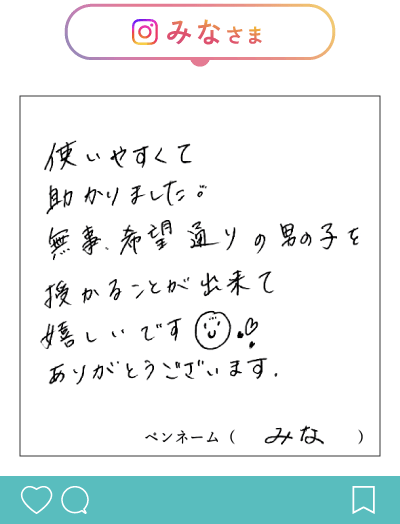 みなさま
使いやすくて
助かりました。
無事、希望通りの男の子を
授かることが出来て
嬉しいです
ありがとうございます.
ペンネーム( みな )